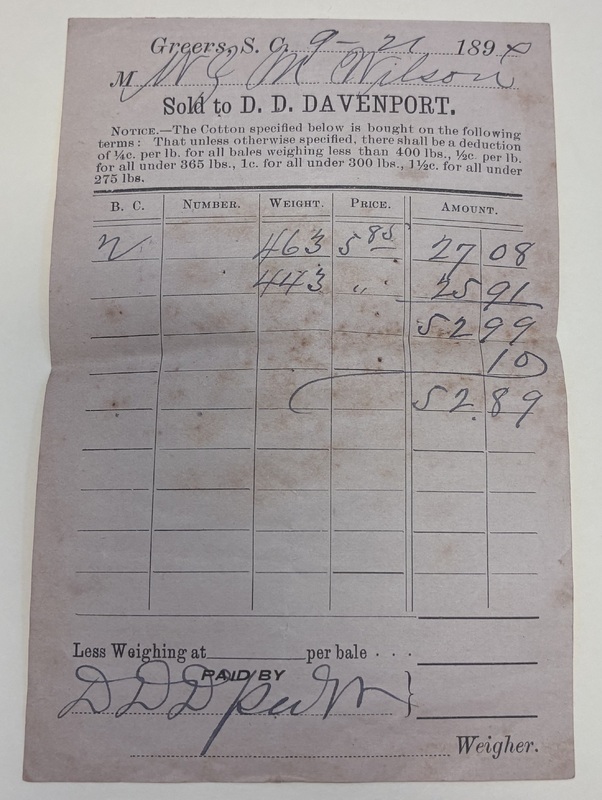 Greers, S. C. 9 - 21 189
M W E McWilson
Sold to D. D. DAVENPORT.
NOTICE.—The Cotton specified below is bought on the following
terms: That unless otherwise specified, there shall be a deduction
of ¼c. per lb. for all bales weighing less than 400 lbs., ½c. per lb.
for all under 365 lbs., 1c. for all under 300 lbs., 1½c. for all under
275 lbs.
B. C. NUMBER. WEIGHT. PRICE. AMOUNT.
2 463 5 85 27 08
443 " 25 91
52 99
10
52.89
Less Weighing at per bale . . .
PAID BY
D D D per
Weigher.